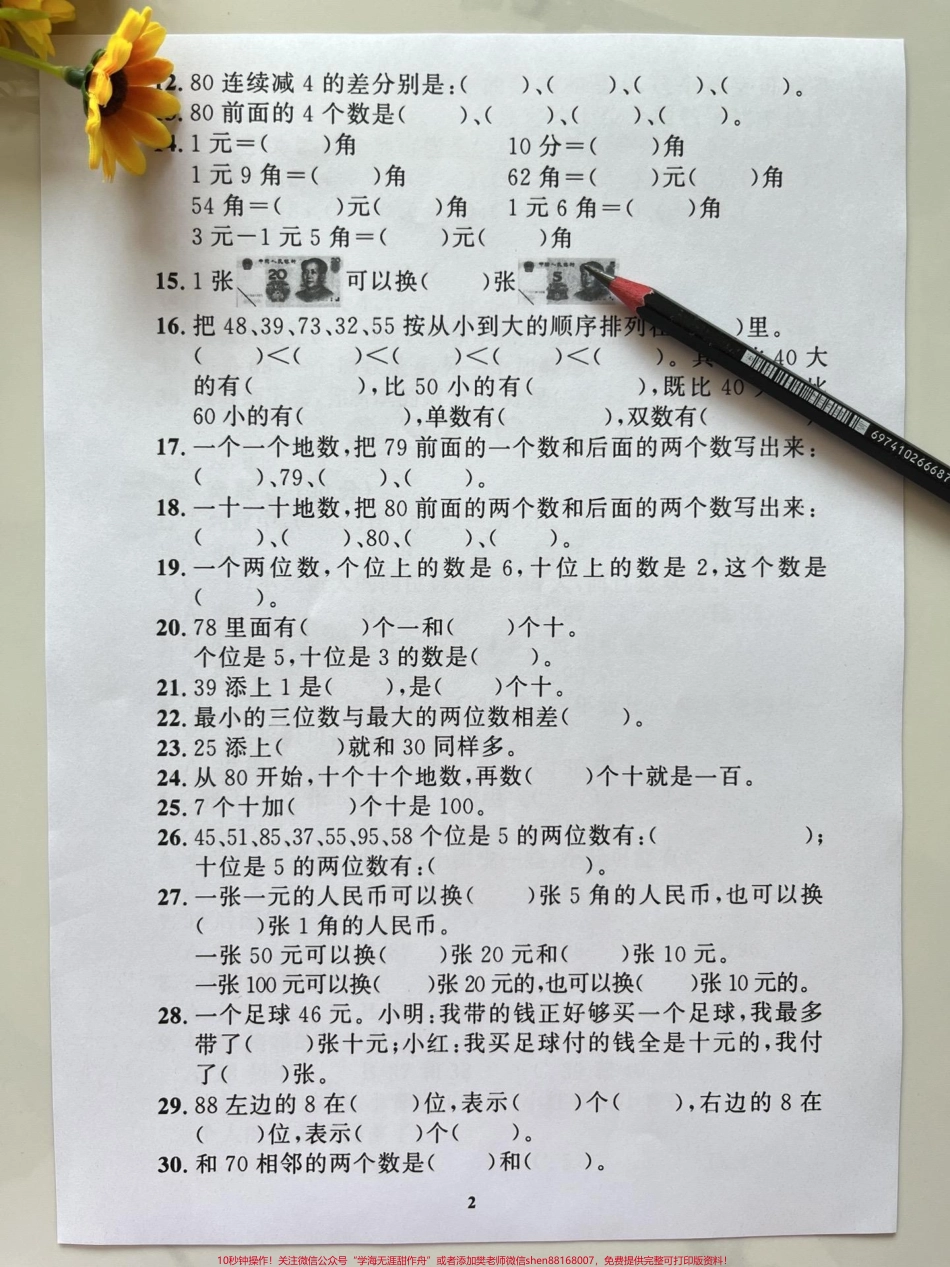 2. 80 连续减 4 的差分别是:(　　)、(　　)、(　　)、(　　)。
80 前面的 4 个数是(　　)、(　　)、(　　)、(　　)。
1 元=(　　)角　　10 分=(　　)角
1 元 9 角=(　　)角　　62 角=(　　)元(　　)角
54 角=(　　)元(　　)角　1 元 6 角=(　　)角
3 元-1 元 5 角=(　　)元(　　)角
15. 1 张 中国人民银行 20 可以换(　　)张 中国人民银行 5
16. 把 48、39、73、32、55 按从小到大的顺序排列 )里。
(　　)<(　　)<(　　)<(　　)<(　　)。 40 大
的有(　　),比 50 小的有(　　),既比 40
60 小的有(　　),单数有(　　),双数有(
17. 一个一个地数,把 79 前面的一个数和后面的两个数写出来:
(　　)、79、(　　)、(　　)。
18. 一十一十地数,把 80 前面的两个数和后面的两个数写出来:
(　　)、(　　)、80、(　　)、(　　)。
19. 一个两位数,个位上的数是 6,十位上的数是 2,这个数是
(　　)。
20. 78 里面有(　　)个一和(　　)个十。
个位是 5,十位是 3 的数是(　　)。
21. 39 添上 1 是(　　),是(　　)个十。
22. 最小的三位数与最大的两位数相差(　　)。
23. 25 添上(　　)就和 30 同样多。
24. 从 80 开始,十个十个地数,再数(　　)个十就是一百。
25. 7 个十加(　　)个十是 100。
26. 45、51、85、37、55、95、58 个位是 5 的两位数有:(　　);
十位是 5 的两位数有:(　　)。
27. 一张一元的人民币可以换(　　)张 5 角的人民币,也可以换
(　　)张 1 角的人民币。
一张 50 元可以换(　　)张 20 元和(　　)张 10 元。
一张 100 元可以换(　　)张 20 元的,也可以换(　　)张 10 元的。
28. 一个足球 46 元。小明:我带的钱正好够买一个足球,我最多
带了(　　)张十元;小红:我买足球付的钱全是十元的,我付
了(　　)张。
29. 88 左边的 8 在(　　)位,表示(　　)个(　　),右边的 8 在
(　　)位,表示(　　)个(　　)。
30. 和 70 相邻的两个数是(　　)和(　　)。
2
697410266687
10秒钟操作！关注微信公众号“学海无涯甜作舟”或者添加樊老师微信shen88168007，免费提供完整可打印版资料！